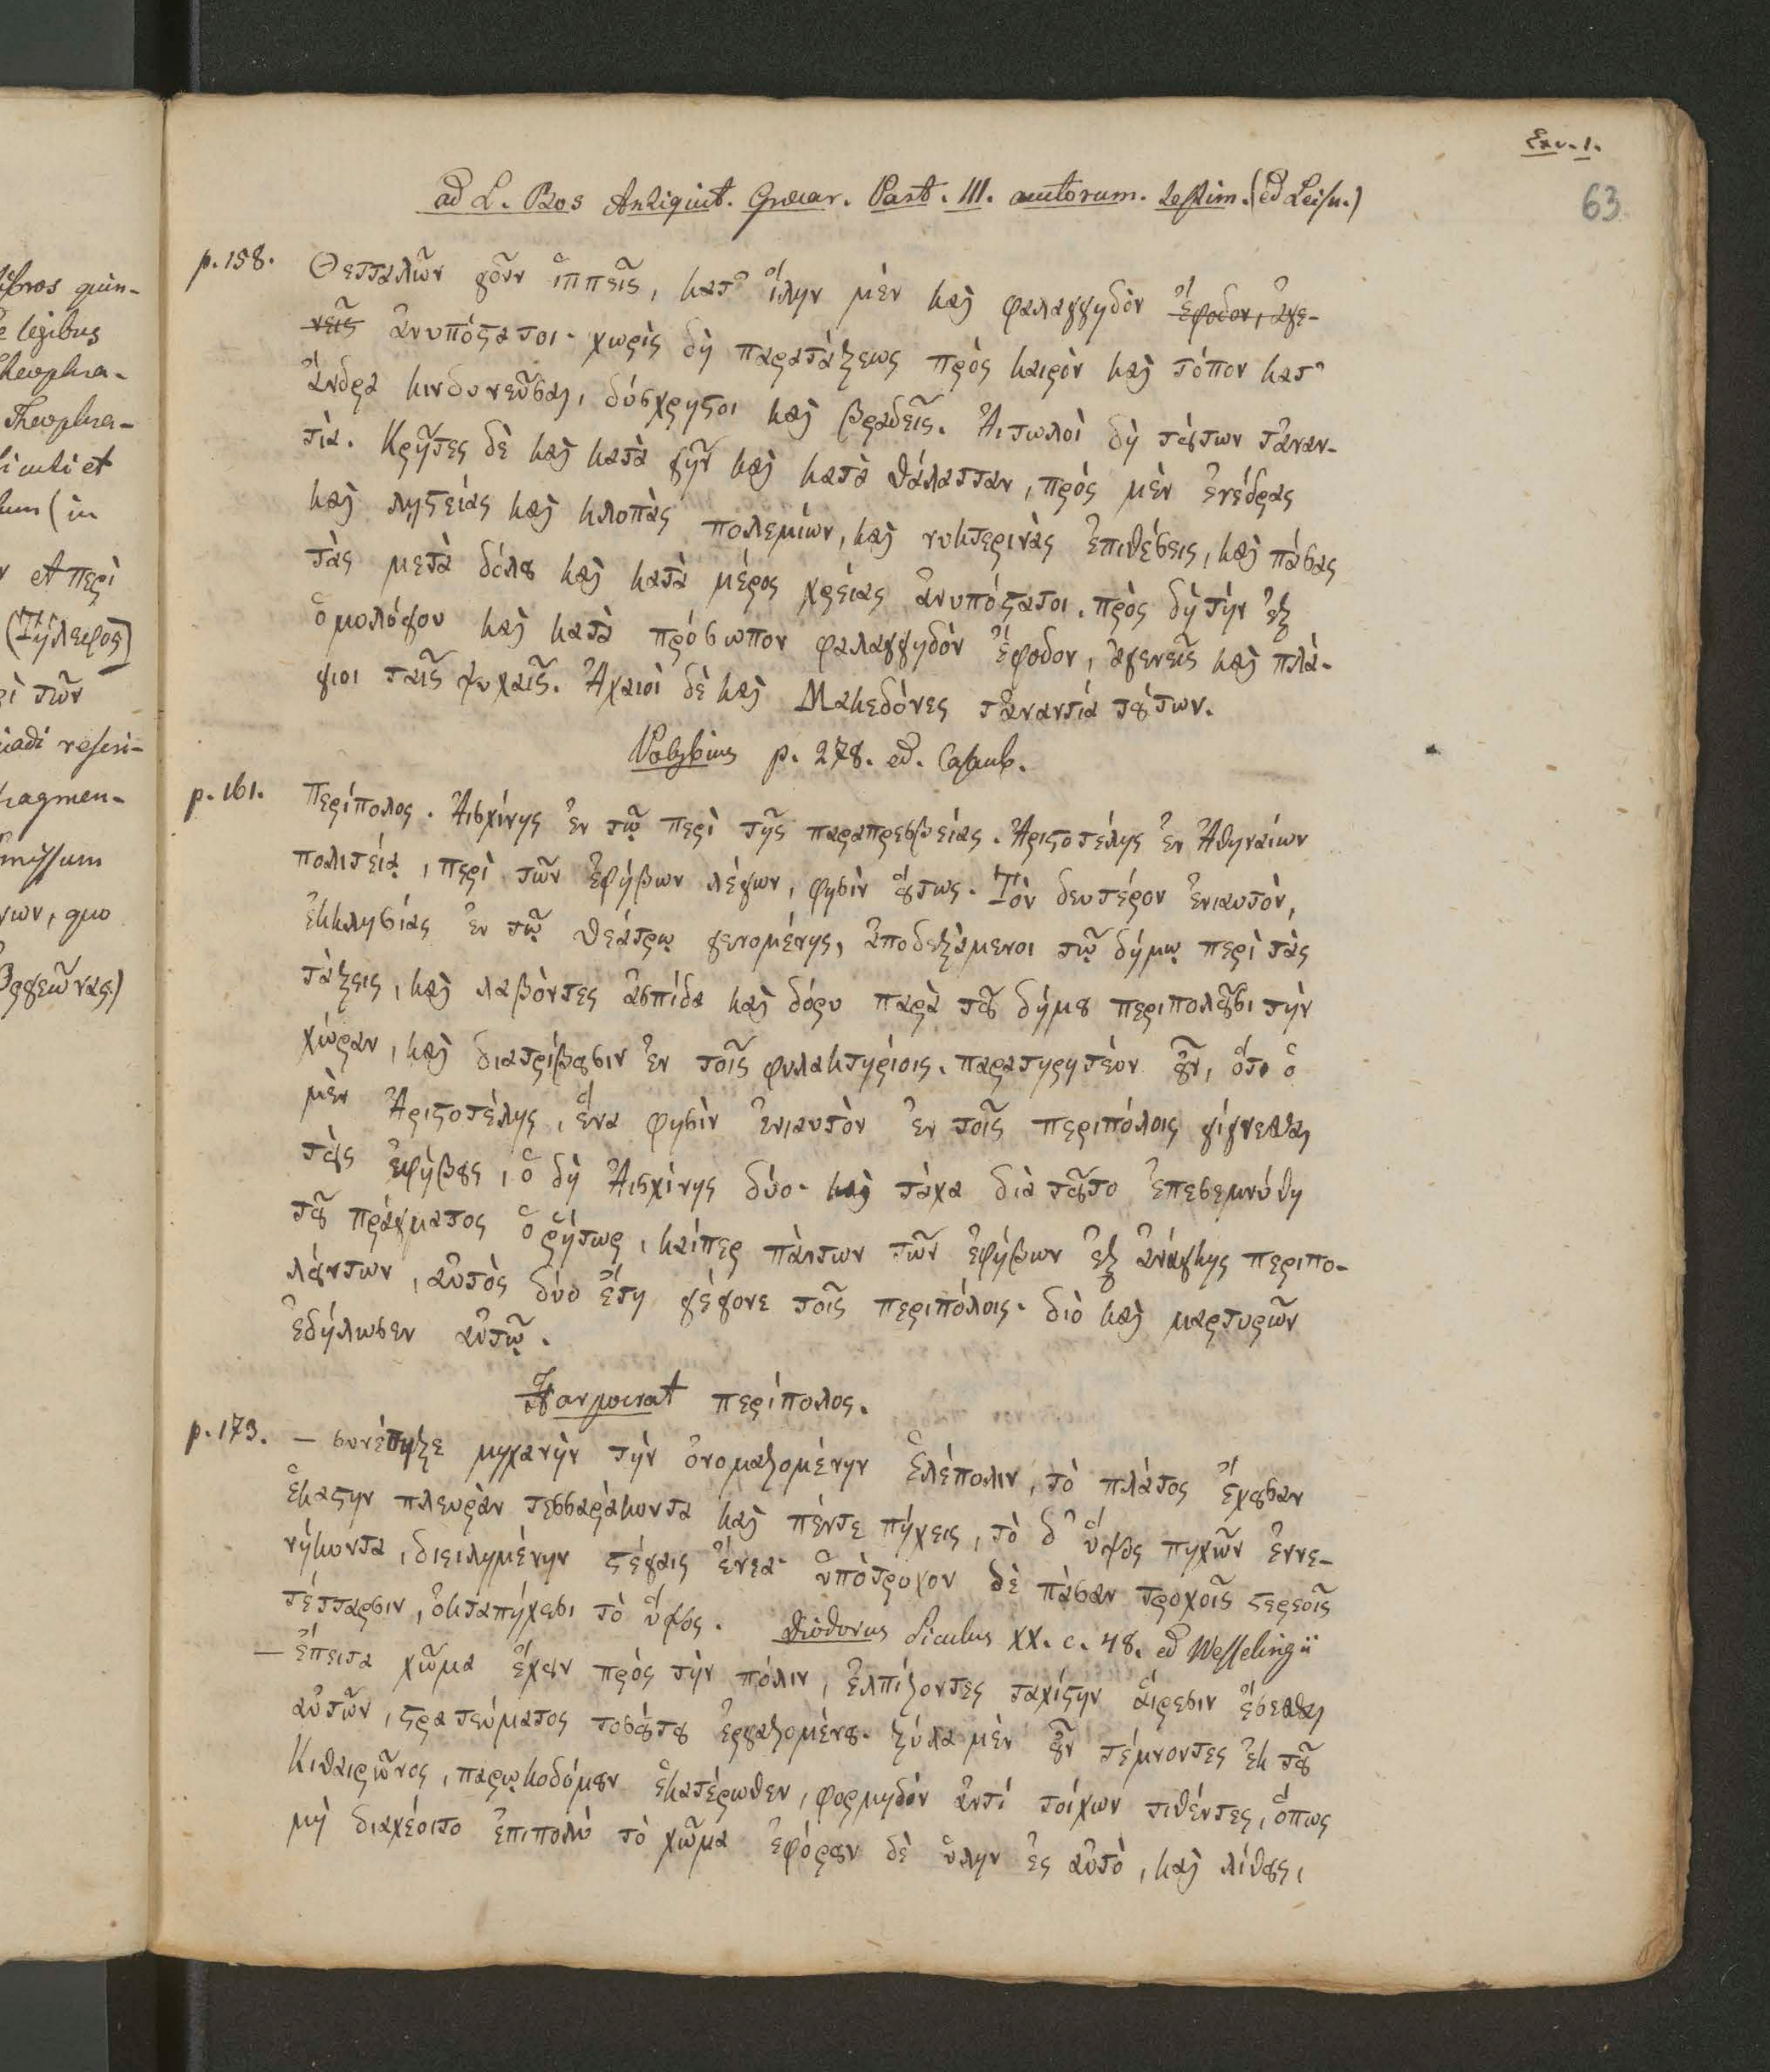 Exc. 1.
63
ad L. Bos Antiquit. Graecar. Part. III. auctorum. Testim. (ed Leisn.)
p. 158. Θετταλῶν γοῦν ἱππεῖς, κατ' ἴλην μὲν καὶ φαλαγγηδὸν ἔφοδον, ἀγε-
νεῖς ἀνυπόστατοι· χωρὶς δὴ παρατάξεως πρὸς καιρὸν καὶ τόπον κατ'
ἄνδρα κινδυνεῦσαι, δύσχρηστοι καὶ βραδεῖς. Ἀιτωλοὶ δὴ τούτων τἀναν-
τία. Κρῆτες δὲ καὶ κατὰ γῆν καὶ κατὰ θάλατταν, πρὸς μὲν ἐνέδρας
καὶ λῃστείας καὶ κλοπὰς πολεμίων, καὶ νυκτερινὰς ἐπιθέσεις, καὶ πάσας
τὰς μετὰ δόλου καὶ κατὰ μέρος χρείας ἀνυπόστατοι. πρὸς δὴ τὴν ἐξ
ὁμολόγου καὶ κατὰ πρόσωπον φαλαγγηδὸν ἔφοδον, ἀγενεῖς καὶ πλά-
γιοι ταῖς ψυχαῖς. Ἀχαιοὶ δὲ καὶ Μακεδόνες τἀναντία τούτων.
Polybius p. 278. ed. Casaub.
p. 161. Περίπολος. Ἀισχίνης ἐν τῷ περὶ τῆς παραπρεσβείας. Ἀριστοτέλης ἐν Ἀθηναίων
πολιτείᾳ, περὶ τῶν ἐφήβων λέγων, φησὶν οὕτως. Τὸν δευτέρον ἐνιαυτὸν,
ἐκκλησίας ἐν τῷ θεάτρῳ γενομένης, ἀποδεξάμενοι τῷ δήμῳ περὶ τὰς
τάξεις, καὶ λαβόντες ἀσπίδα καὶ δόρυ παρὰ τοῦ δήμου περιπολοῦσι τὴν
χώραν, καὶ διατρίβουσιν ἐν τοῖς φυλακτηρίοις. παρατηρητέον οὖν, ὅτι ὁ
μὲν Ἀριστοτέλης, ἕνα φησὶν ἐνιαυτὸν ἐν τοῖς περιπόλοις γίγνεσθαι
τοὺς ἐφήβους, ὁ δὴ Ἀισχίνης δύο· καὶ τάχα διὰ τοῦτο ἐπεσεμνύθη
τοῦ πράγματος ὁ ῥήτωρ, καίπερ πάντων τῶν ἐφήβων ἐξ ἀνάγκης περιπο-
λούντων, αὐτὸς δύο ἔτη γέγονε τοῖς περιπόλοις· διὸ καὶ μαρτυρῶν
ἐδήλωσεν αὐτῷ.
Harpocrat περίπολος.
p. 173. — συνέπηξε μηχανὴν τὴν ὀνομαζομένην ἑλέπολιν, τὸ πλάτος ἔχουσαν
ἑκάστην πλευρὰν τεσσαράκοντα καὶ πέντε πήχεις, τὸ δ' ὕψος πηχῶν ἐννε-
νήκοντα, διειλημένην στέγαις ἐνεα· ὑπότροχον δὲ πᾶσαν τροχοῖς στερεοῖς
τέτταρσιν, ὀκταπήχεσι τὸ ὕψος. Diodorus Siculus XX. c. 48. ed Wesselingii
— ἔπειτα χῶμα ἔχουν πρὸς τὴν πόλιν, ἐλπίζοντες ταχίστην αἵρεσιν ἔσεσθαι
αὐτῶν, στρατεύματος τοσούτου ἐργαζομένου. ξύλα μὲν οὖν τέμνοντες ἐκ τοῦ
Κιθαιρῶνος, παρῳκοδόμουν ἑκατέρωθεν, φορμηδὸν ἀντί τοίχων τιθέντες, ὅπως
μὴ διαχέοιτο ἐπιπολὺ τὸ χῶμα ἐφόρουν δὲ ὕλην ἐς αὐτὸ, καὶ λίθους,